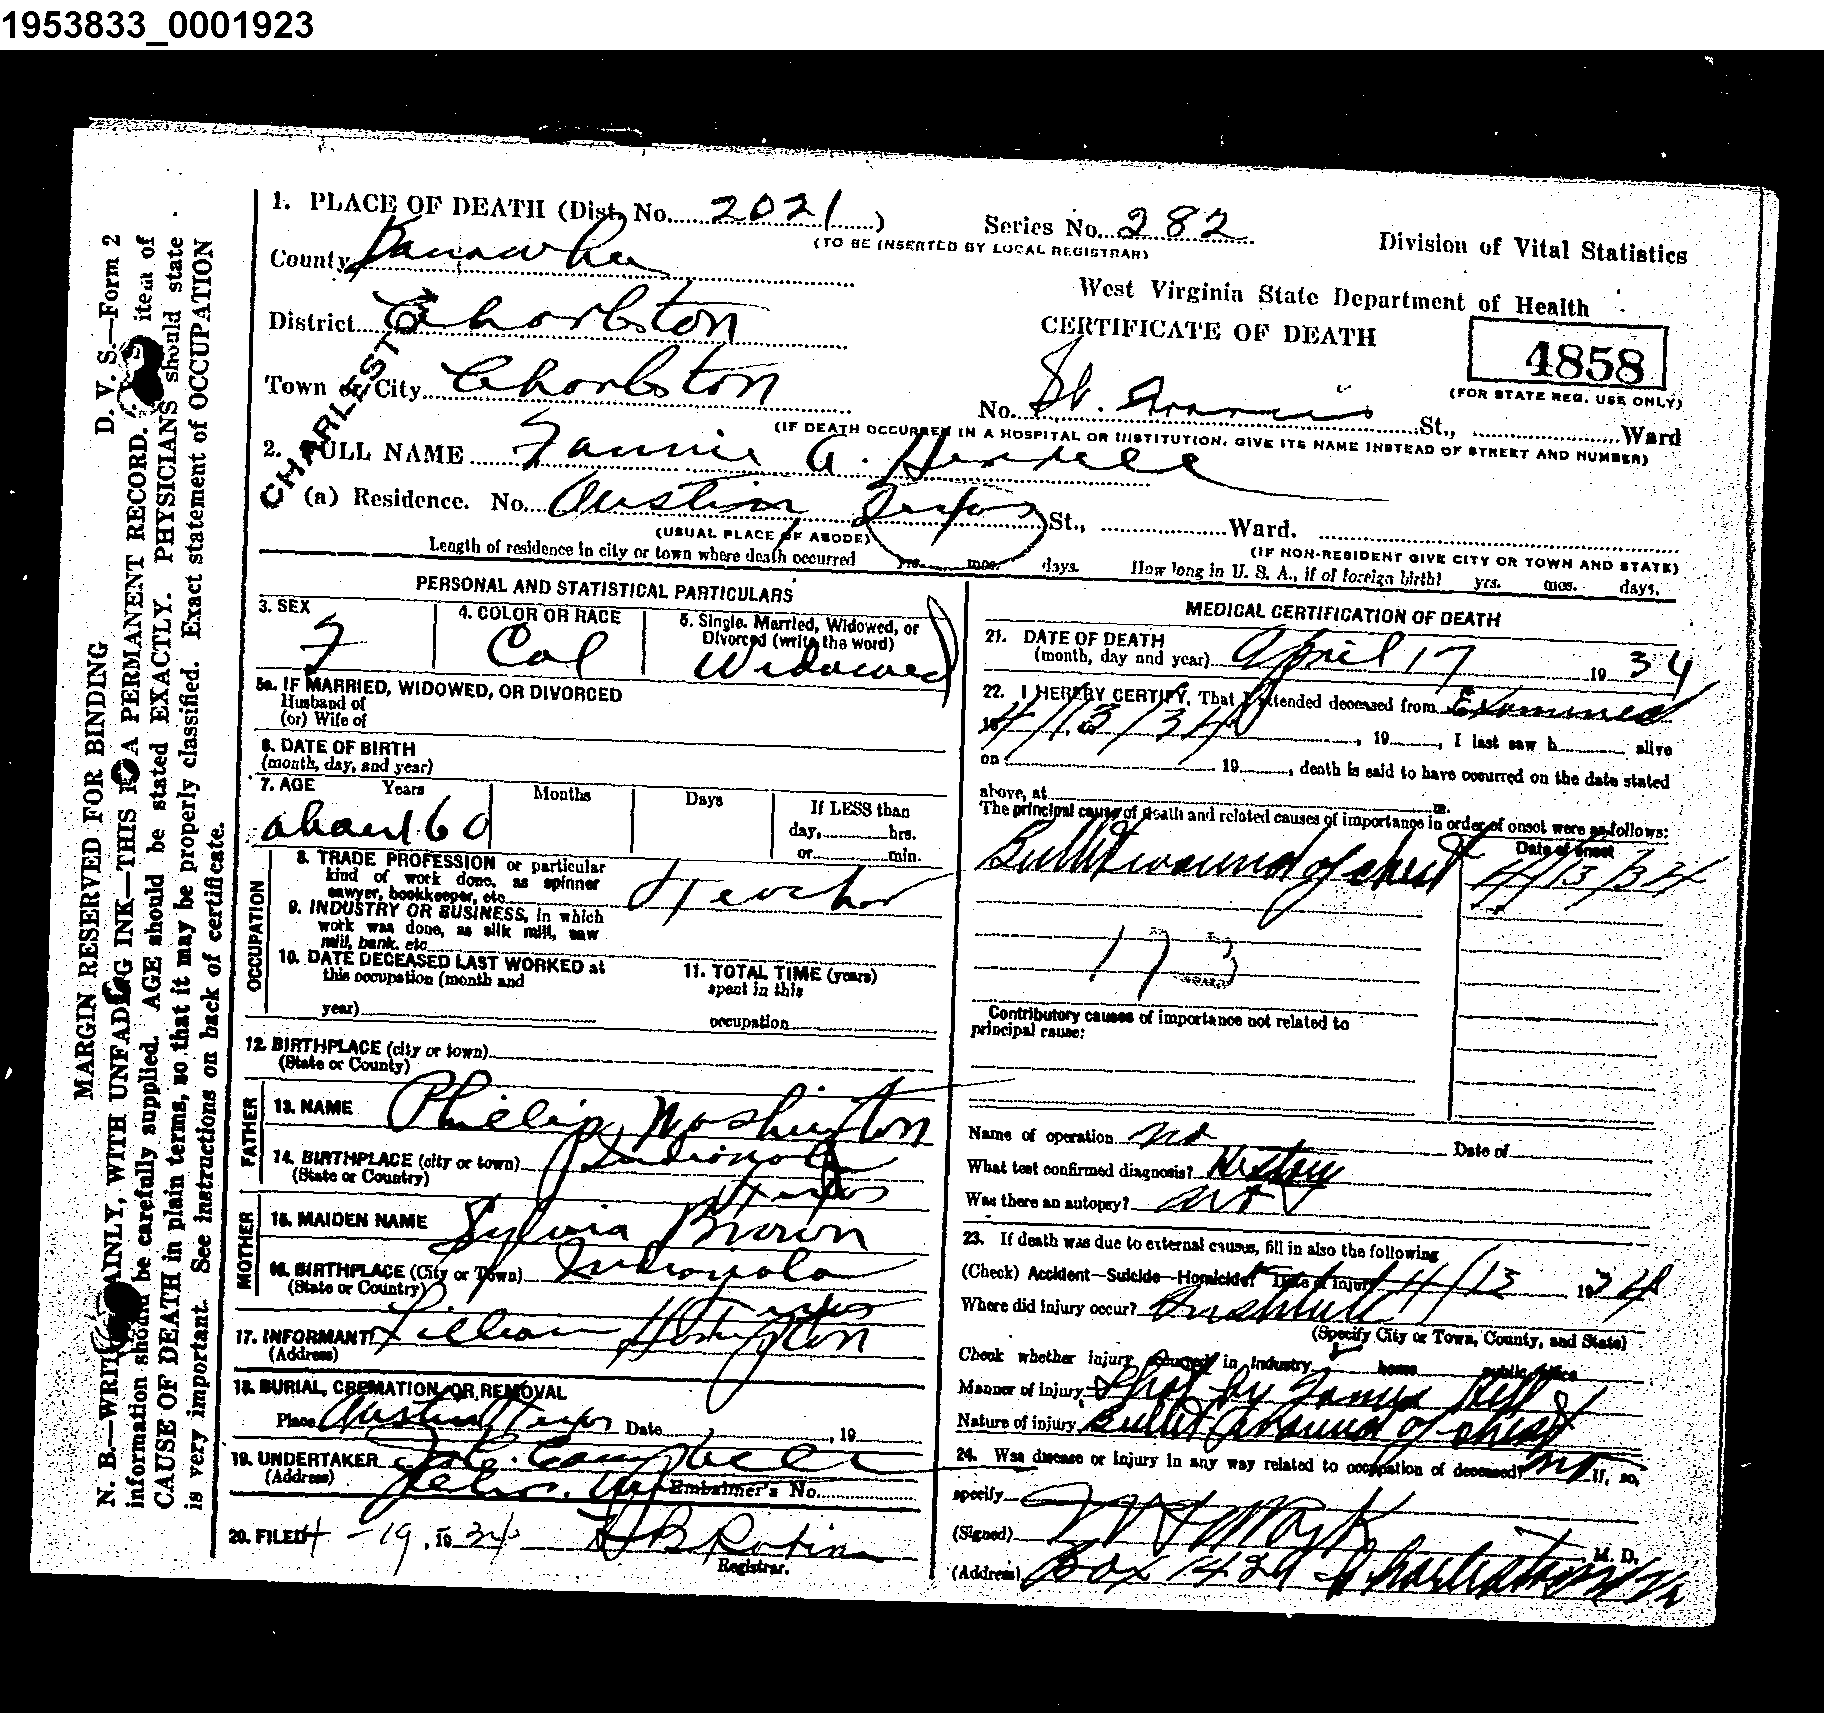 1953833_0001923
1. PLACE OF DEATH (Dist. No. 2021)
Series No. 282
(TO BE INSERTED BY LOCAL REGISTRAR)
Division of Vital Statistics
County Kanawha
West Virginia State Department of Health
District Charleston
CERTIFICATE OF DEATH
4858
(FOR STATE REG. USE ONLY)
Town or City Charleston
CHARLESTON
No. St. Francis St., Ward
(IF DEATH OCCURRED IN A HOSPITAL OR INSTITUTION, GIVE ITS NAME INSTEAD OF STREET AND NUMBER)
2. FULL NAME Fannie A.
(a) Residence. No. Austin Texas St., Ward.
(USUAL PLACE OF ABODE)
(IF NON-RESIDENT GIVE CITY OR TOWN AND STATE)
Length of residence in city or town where death occurred yrs. mos. days. How long in U. S. A., if of foreign birth? yrs. mos. days.
PERSONAL AND STATISTICAL PARTICULARS
3. SEX
F
4. COLOR OR RACE
Col
5. Single, Married, Widowed, or
Divorced (write the word)
Widowed
5a. IF MARRIED, WIDOWED, OR DIVORCED
Husband of
(or) Wife of
6. DATE OF BIRTH
(month, day, and year)
7. AGE Years Months Days If LESS than
day, hrs.
or min.
about 60
OCCUPATION
8. TRADE PROFESSION or particular
kind of work done, as spinner
sawyer, bookkeeper, etc. Teacher
9. INDUSTRY OR BUSINESS, in which
work was done, as silk mill, saw
mill, bank, etc
10. DATE DECEASED LAST WORKED at
this occupation (month and
year)
11. TOTAL TIME (years)
spent in this
occupation
12. BIRTHPLACE (city or town)
(State or County)
FATHER
13. NAME Phillip Washington
14. BIRTHPLACE (city or town) Indianola
(State or Country) Texas
MOTHER
15. MAIDEN NAME Sylvia Brown
16. BIRTHPLACE (City or Town) Indianola
(State or Country) Texas
17. INFORMANT Lillian
(Address)
18. BURIAL, CREMATION OR REMOVAL
Place Austin Texas Date , 19
19. UNDERTAKER Campbell
(Address) Embalmer's No.
20. FILED 4-19, 1934
Registrar.
MEDICAL CERTIFICATION OF DEATH
21. DATE OF DEATH
(month, day and year) April 17 1934
22. I HEREBY CERTIFY, That I attended deceased from Examined
4/13/34 , 19 , I last saw h alive
on 19 , death is said to have occurred on the date stated
above, at m.
The principal cause of death and related causes of importance in order of onset were as follows:
Date of onset
Bullet wound of chest 4/13/34
173
Contributory causes of importance not related to
principal cause:
Name of operation no Date of
What test confirmed diagnosis? History
Was there an autopsy? not
23. If death was due to external causes, fill in also the following
(Check) Accident—Suicide—Homicide? Date of injury 4/13 1934
Where did injury occur?
(Specify City or Town, County, and State)
Check whether injury occurred in industry home public office
Manner of injury Shot by James Hill
Nature of injury Bullet wound of chest
24. Was disease or injury in any way related to occupation of deceased? no If, so,
specify
(Signed) M. D.
(Address) Box 1429 Charleston W Va
MARGIN RESERVED FOR BINDING
D. V. S.—Form 2
N. B.—WRITE PLAINLY, WITH UNFADING INK—THIS IS A PERMANENT RECORD. item of
information should be carefully supplied. AGE should be stated EXACTLY. PHYSICIANS should state
CAUSE OF DEATH in plain terms, so that it may be properly classified. Exact statement of OCCUPATION
is very important. See instructions on back of certificate.